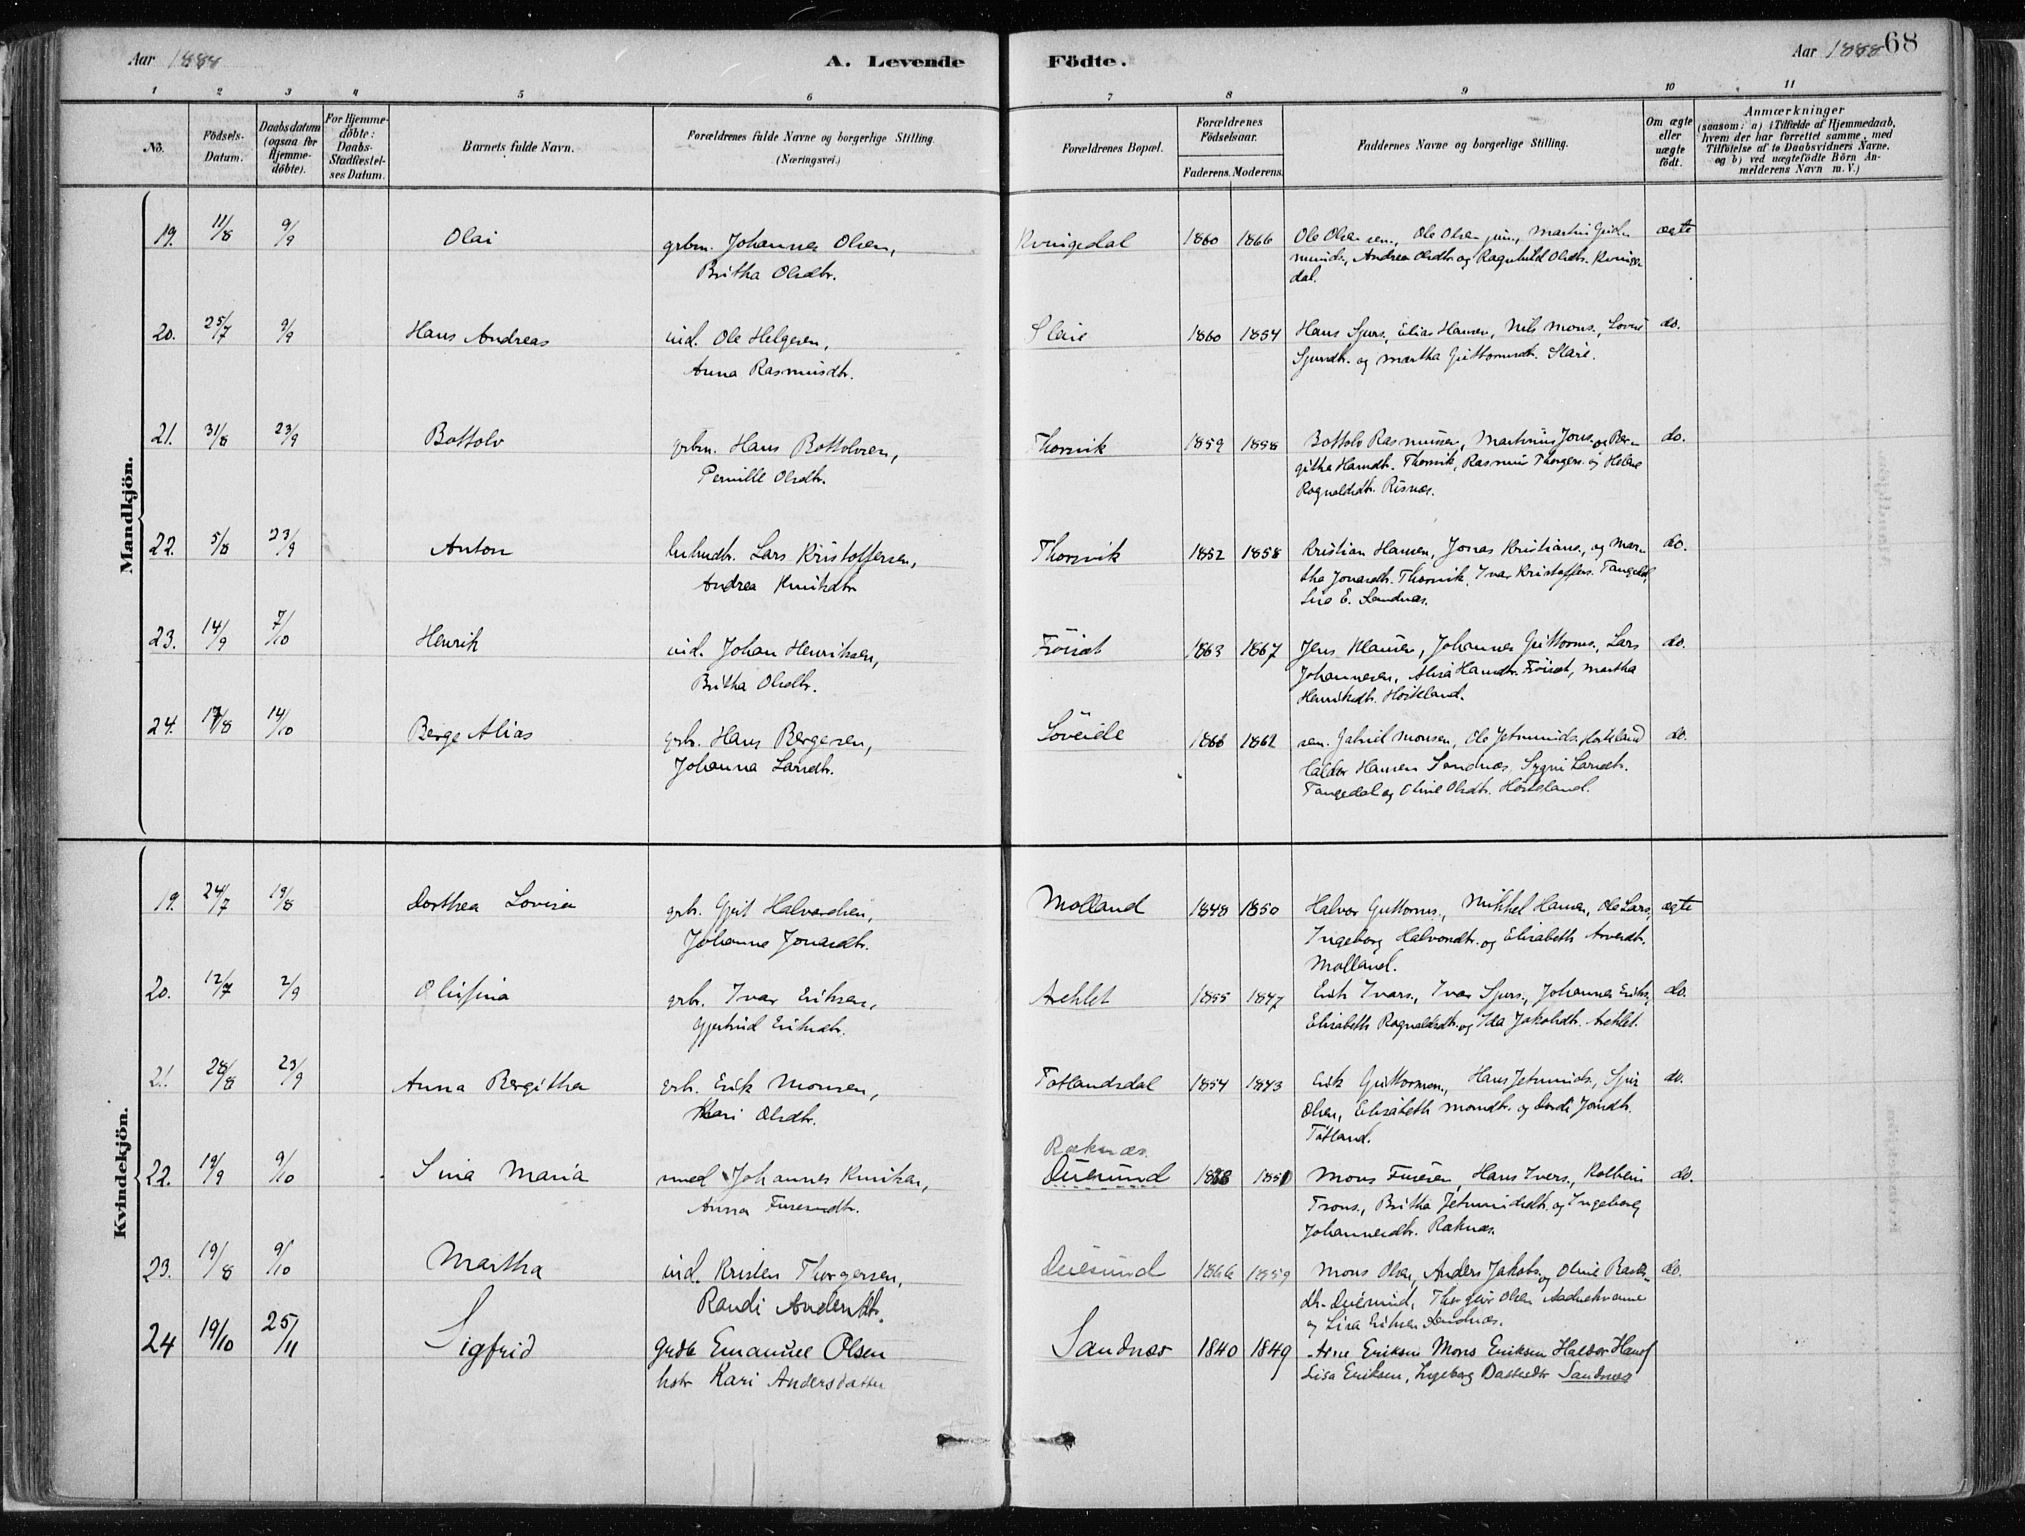 Aar 1888
A. Levende Födte.
Aar 1888 68
1 2 3 4 5 6 7 8 9 10 11
No.
Födsels-Datum.
Daabsdatum (ogsaa for Hjemme-döbte).
For Hjemme-döbte: Daabs-Stadfæstel-ses Datum.
Barnets fulde Navn.
Forældrenes fulde Navne og borgerlige Stilling (Næringsvei.)
Forældrenes Bopæl.
Forældrenes Födselsaar.
Faderens. Moderens.
Faddernes Navne og borgerlige Stilling.
Om ægte eller uægte födt.
Anmærkninger
(saasom: a) i Tilfælde af Hjemmedaab, hvem der har forrettet samme, med Tilföielse af to Daabsvidners Navne. og b) ved uægtefödte Börn An-melderens Navn m. V.)
Mandkjön.
19. 11/8 9/9 Olai grbm. Johannes Olsen, Kvingedal 1860 1866 Ole Olsen sen., Ole Olsen jun., Martin Gud- ægte
Britha Olsdtr. munds., Andrea Olsdtr. og Ragnhild Olsdtr. Kvinge
dal.
20. 25/7 9/9 Hans Andreas ind. Ole Helgesen, 1860 1854 Hans Sjurs., Elias Hansen, Nils Mons., do.
Anna Rasmusdtr. Sjursdtr. og Martha Guttormsdtr.
21. 31/8 23/9 Bottolv grbm. Hans Bottolvsen, Thorsvik 1859 1858 Bottolv Rasmussen, Martinus Jons. og Ber- do.
Pernille Olsdtr. githa Hansdtr. Thorsvik, Rasmus Thorgers. og Helene
Ragnaldsdtr. Risnes.
22. 5/8 23/9 Anton Lars Kristoffersen, Thorsvik 1852 1858 Kristian Hansen, Jonas Kristians., og Mar- do.
Andrea Knutsdtr. tha Jonasdtr. Thorsvik, Ivar Kristoffers. Tangedal
E. Sandnes.
23. 14/9 7/10 Henrik ind. Johan Henriksen, Fröiset 1863 1867 Jens Klausen, Johannes Guttorms., Lars do.
Britha Olsdtr. Johannesen, Hansdtr. Fröiset, Martha
Henriksdtr. Hosteland.
24. 17/8 14/10 Berge Alias grbr. Hans Bergesen, 1862 Gabriel Monsen, Ole Jetmunds. Hosteland do.
Johanna Larsdtr. Haldor Hansen Sandnes, Larsdtr.
Tangedal og Oline Olsdtr. Hosteland.
Kvindekjön.
19. 24/7 19/8 Dorthea Lovisa grbr. Halvardsen, Molland 1848 1850 Halvor Guttorms., Mikkel Hansen, Ole Lars., ægte
Johanne Jonasdtr. Ingeborg Halvorsdtr. og Elisabeth
Molland.
20. 12/7 2/9 grbr. Ivar Eriksen, 1855 1847 Erik Ivars., Ivar Sjurs., Johannes Eriks., do.
Gjertrud Eriksdtr. Elisabeth Ragnaldsdtr. og Ida Jakobsdtr.
21. 28/8 23/9 Anna Bergitha grbr. Erik Monsen, Totlandsdal 1854 1843 Erik Guttormsen, Hans Jetmunds., Sjur do.
Kari Olsdtr. Olsen, Elisabeth Monsdtr. og Jonsdtr.
Totland.
Raknæs.
22. 19/9 9/10 Sina Maria Johannes Knutsen, Duesund 1851 Mons Furesen, Hans Ivers., Kolbein do.
Anna Trons., Britha Jetmundsdtr. og Ingeborg
Johannesdtr. Raknæs.
23. 19/8 9/10 Martha ind. Kristen Thorgersen, Duesund 1866 1859 Mons Olsen, Anders Jakobs. og Oline do.
Randi Andersdtr. Duesund, Olsen
og Lisa Eriksen Sandnæs.
24 19/10 25/11 Sigfrid grdbr Emanuel Olsen Sandnes 1840 1849 Arne Eriksen Mons Eriksen Haldor Hansf
hstr Kari Andersdatter Lisa Eriksen, Ingeborg Sandnes